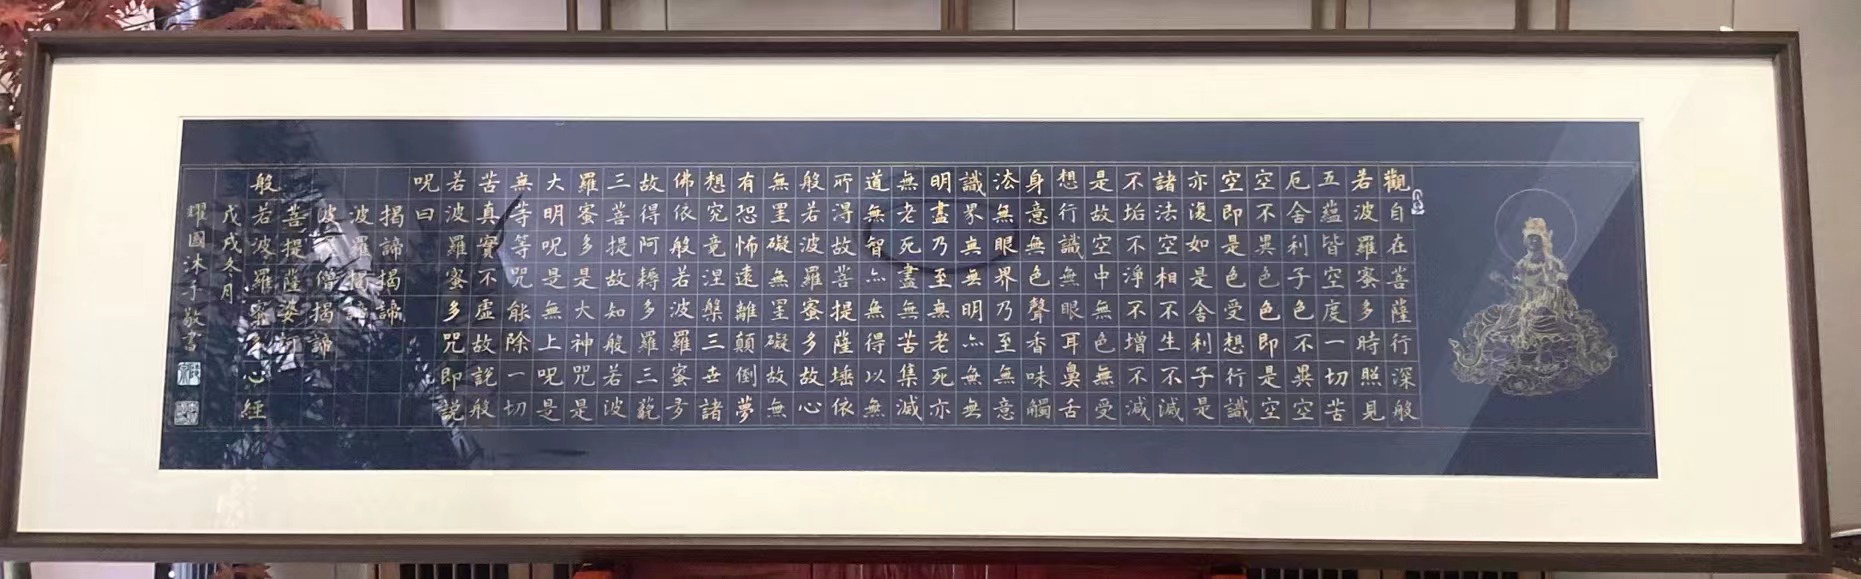 觀自在菩薩行深般
若波羅蜜多時照見
五蘊皆空度一切苦
厄舍利子色不異空
空不異色色即是空
空即是色受想行識
亦復如是舍利子是
諸法空相不生不滅
不垢不淨不增不減
是故空中無色無受
想行識無眼耳鼻舌
身意無色聲香味觸
法無眼界乃至無意
識界無無明亦無無
明盡乃至無老死亦
無老死盡無苦集滅
道無智亦無得以無
所得故菩提薩埵依
般若波羅蜜多故心
無罣礙無罣礙故無
有恐怖遠離顛倒夢
想究竟涅槃三世諸
佛依般若波羅蜜多
故得阿耨多羅三藐
三菩提故知般若波
羅蜜多是大神咒是
大明呪是無上呪是
無等等咒能除一切
苦真實不虛故說般
若波羅蜜多咒即説
呪曰
揭諦揭諦
波羅揭諦
波羅僧揭諦
菩提薩婆訶
般若波羅蜜多心經
戊戌冬月
耀國沐手敬書